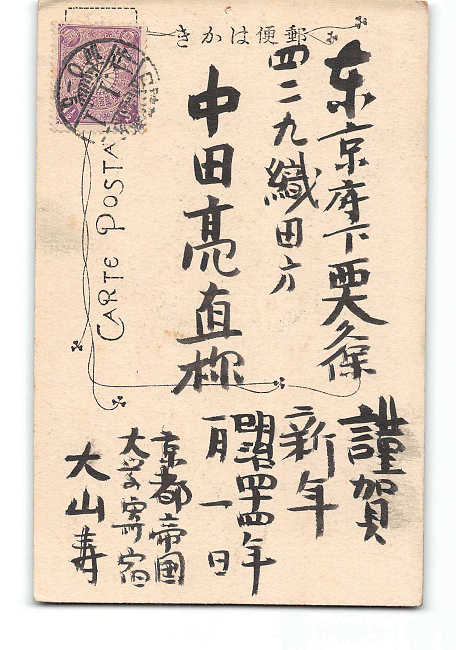 郵便はかき
CARTE POSTA
東京府下大久保
四二九織田方
中田亮直様
謹賀
新年
明治四十四年
一月一日
京都帝国
大学寄宿
大山寿